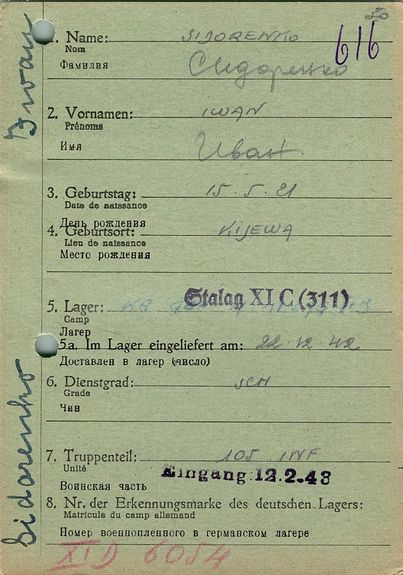 1. Name: SIDORENKO
Nom
Фамилия Сидоренко
616
2. Vornamen: IWAN
Prénoms
Имя Иван
3. Geburtstag: 15.5.21
Date de naissance
День рождения
4. Geburtsort: KIJEWA
Lieu de naissance
Место рождения
5. Lager: Stalag XI C (311)
Camp
Лагерь
5a. Im Lager eingeliefert am: 22.12.42
Доставлен в лагерь (число)
6. Dienstgrad: SCH
Grade
Чин
7. Truppenteil: 105 INF
Unité
Eingang 12.2.43
Воинская часть
8. Nr. der Erkennungsmarke des deutschen Lagers:
Matricule du camp allemand
Номер военнопленного в германском лагере
XI D 6054
Sidorenko Iwan